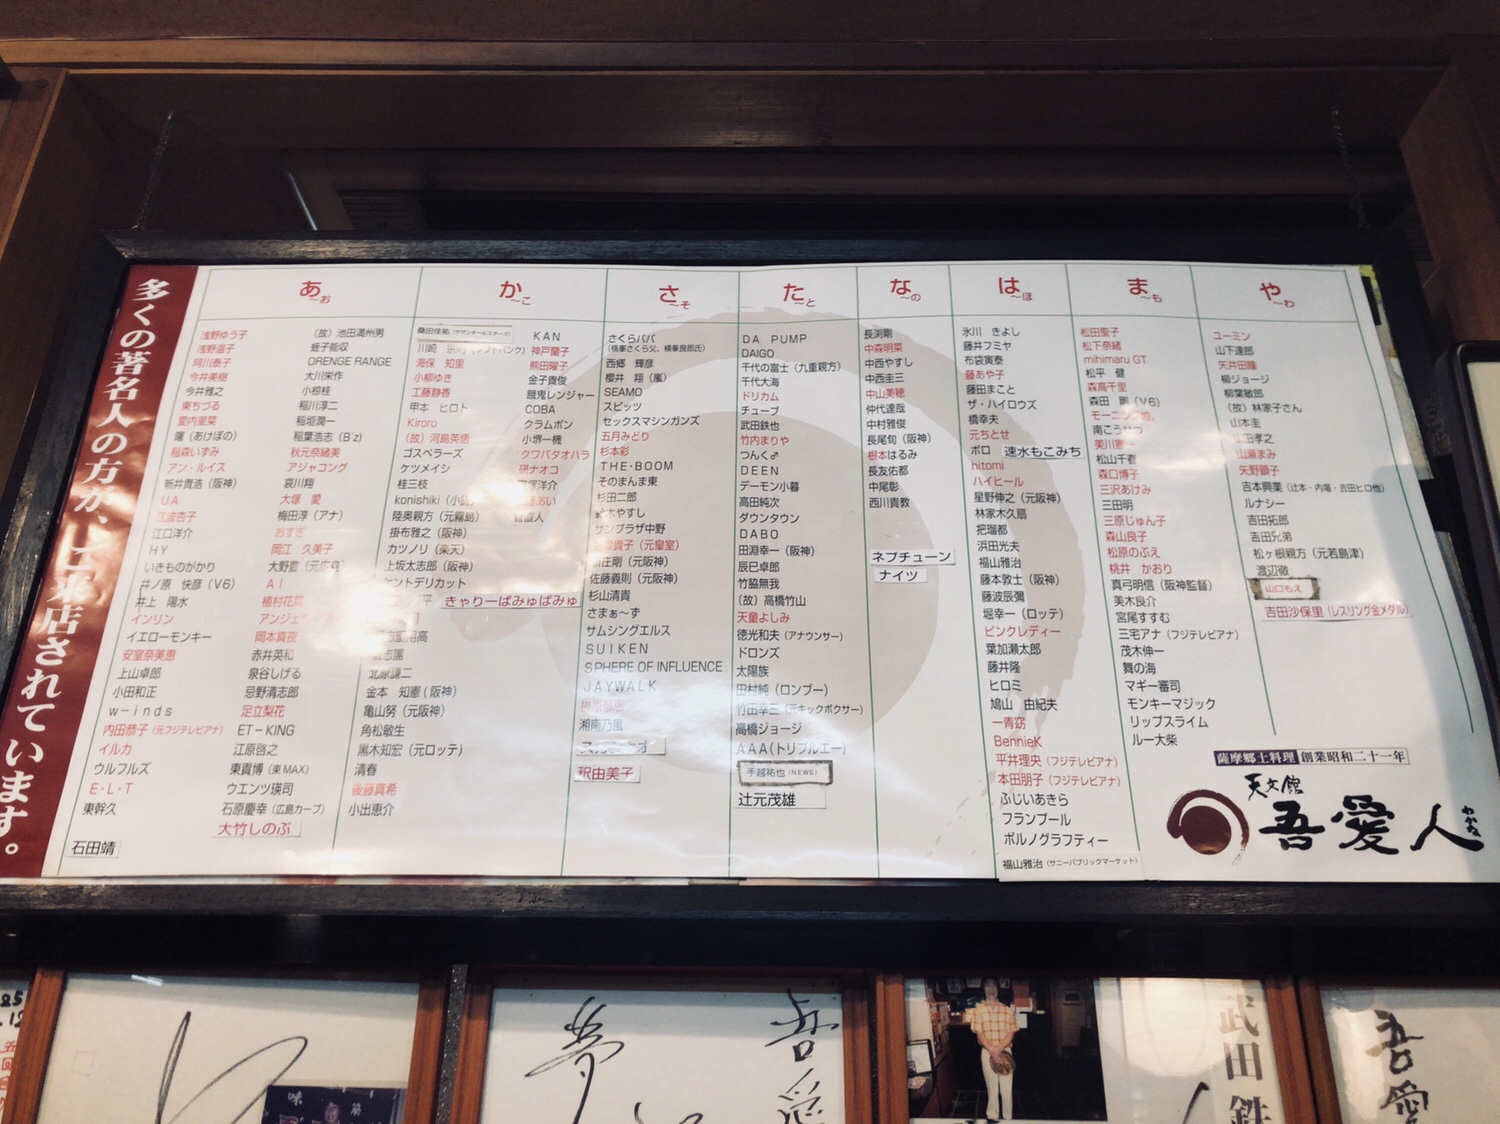 多くの著名人の方が、ご来店されています。
あ～お
浅野ゆう子
浅野温子
阿川泰子
今井美樹
今井雅之
東ちづる
愛内里菜
曙（あけぼの）
稲森いずみ
アン・ルイス
新井貴浩（阪神）
UA
江波杏子
江口洋介
HY
いきものがかり
井ノ原　快彦（V6）
井上　陽水
インリン
イエローモンキー
安室奈美恵
上山卓郎
小田和正
w－inds
内田恭子（元フジテレビアナ）
イルカ
ウルフルズ
E・L・T
東幹久
石田靖
（故）池田満州男
蛭子能収
ORENGE RANGE
大川栄作
小椋桂
稲川淳二
稲垣潤一
稲葉浩志（B'z）
秋元奈緒美
アジャコング
哀川翔
大塚　愛
梅田淳（アナ）
おすぎ
岡江　久美子
AI
植村花菜
岡本真夜
赤井英和
泉谷しげる
忌野清志郎
足立梨花
ET－KING
江原啓之
東貴博（東MAX）
ウエンツ瑛司
石原慶幸（広島カープ）
大竹しのぶ
か～こ
桑田佳祐（サザンオールスターズ）
海保　知里
小柳ゆき
工藤静香
甲本　ヒロト
Kiroro
（故）河島英悟
ゴスペラーズ
ケツメイシ
桂三枝
陸奥親方（元霧島）
掛布雅之（阪神）
カツノリ（楽天）
上坂太志郎（阪神）
ケントデリカット
きゃりーぱみゅぱみゅ
氣志團
北原謙二
金本　知憲（阪神）
亀山努（元阪神）
角松敏生
黒木知宏（元ロッテ）
清春
後藤真希
小出恵介
KAN
神戸蘭子
熊田曜子
金子貴俊
餓鬼レンジャー
COBA
クラムボン
小堺一機
クワバタオハラ
研ナオコ
さ～そ
さくらパパ
（横峯さくら父、横峯良郎氏）
西郷　輝彦
櫻井　翔（嵐）
SEAMO
スピッツ
セックスマシンガンズ
五月みどり
杉本彩
THE・BOOM
そのまんま東
杉田二郎
鈴木やすし
サンプラザ中野
新庄剛（元阪神）
佐藤義則（元阪神）
杉山清貴
さまぁ～ず
サムシングエルス
SUIKEN
SPHERE OF INFLUENCE
JAYWALK
湘南乃風
釈由美子
た～と
DA　PUMP
DAIGO
千代の富士（九重親方）
千代大海
ドリカム
チューブ
武田鉄也
竹内まりや
つんく♂
DEEN
デーモン小暮
高田純次
ダウンタウン
DABO
田淵幸一（阪神）
辰巳卓郎
竹脇無我
（故）高橋竹山
天童よしみ
徳光和夫（アナウンサー）
ドロンズ
太陽族
田村純（ロンブー）
竹田幸三（元キックボクサー）
高橋ジョージ
AAA（トリプルエー）
手越祐也（NEWS）
辻元茂雄
な～の
長渕剛
中森明菜
中西やすし
中西圭三
中山美穂
仲代達哉
中村雅俊
長尾旬（阪神）
根本はるみ
長友佑都
中尾彰
西川貴教
ネプチューン
ナイツ
は～ほ
氷川　きよし
藤井フミヤ
布袋寅泰
藤あや子
藤田まこと
ザ・ハイロウズ
橋幸夫
元ちとせ
ポロ　速水もこみち
hitomi
ハイヒール
星野伸之（元阪神）
林家木久扇
把瑠都
浜田光夫
福山雅治
藤本敦士（阪神）
藤波辰彌
堀幸一（ロッテ）
ピンクレディー
葉加瀬太郎
藤井隆
ヒロミ
鳩山　由紀夫
一青窈
BennieK
平井理央（フジテレビアナ）
本田朋子（フジテレビアナ）
ふじいあきら
フランプール
ポルノグラフティー
福山雅治（サニーパブリックマーケット）
ま～も
松田聖子
松下奈緒
mihimaru GT
松平　健
森高千里
森田　剛（V6）
モーニング娘。
南こうせつ
美川憲一
松山千春
森口博子
三沢あけみ
三田明
三原じゅん子
森山良子
松原のぶえ
桃井　かおり
真弓明信（阪神監督）
美木良介
宮尾すすむ
三宅アナ（フジテレビアナ）
茂木伸一
舞の海
マギー審司
モンキーマジック
リップスライム
ルー大柴
や～わ
ユーミン
山下達郎
矢井田瞳
柳ジョージ
柳葉敏郎
（故）林家子さん
山本圭
山田孝之
山瀬まみ
矢野顕子
吉本興業（辻本・内場・吉田ヒロ他）
ルナシー
吉田拓郎
吉田兄弟
松ヶ根親方（元若島津）
渡辺徹
山口もえ
吉田沙保里（レスリング金メダル）
薩摩郷土料理　創業昭和二十一年
天文館
吾愛人
わかな
味
筋
吾愛
武田鉄
吾愛